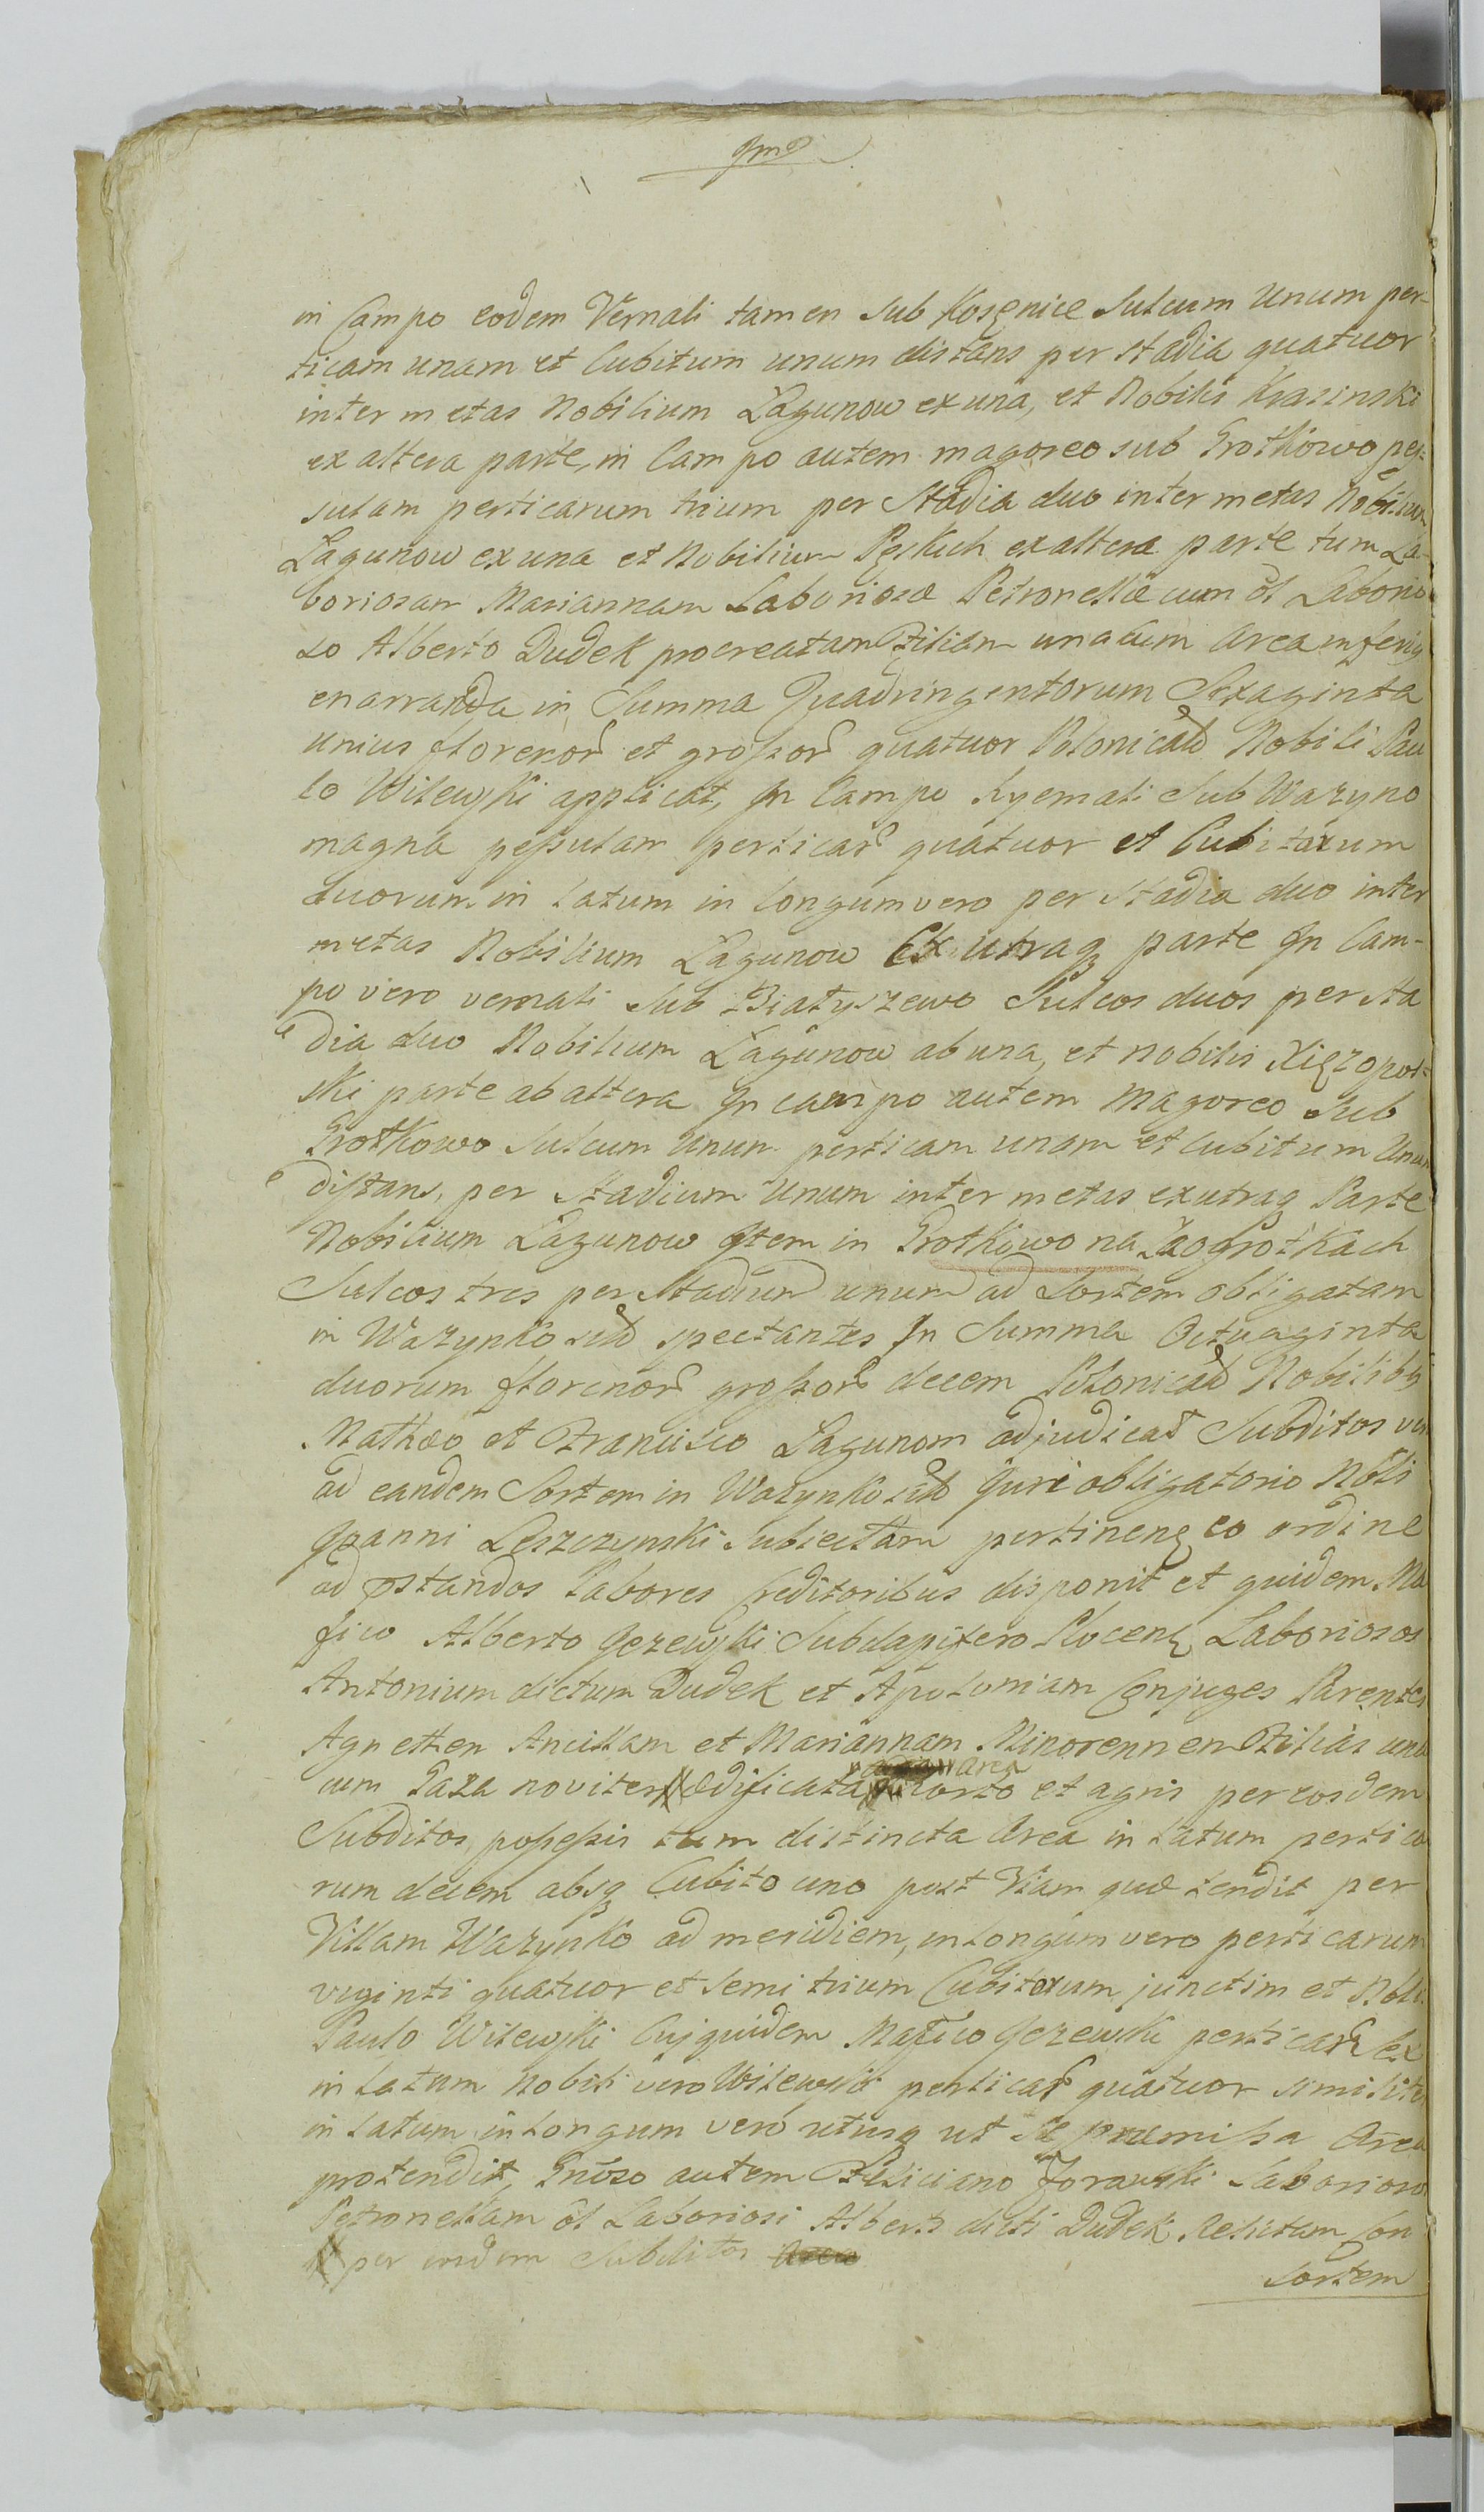 in Campo eodem Vernali tamen sub Kosęnice Sulcum Unum per-
ticam unam et Cubitum unum distans per stadia quatuor
inter metas Nobilium Łagunow ex una, et Nobilis Krasinski
ex altera parte, in Campo autem magoreo sub Grotkowo pes-
sulam perticarum trium per Stadia duo inter metas Nobilium
Łagunow ex una et Nobilium Pęskich ex altera parte tum La-
boriosam Mariannam Laboriosæ Petronellæ cum ol Laborio
so Alberto Dudek procreatam Filiam una cum Area inferig
enarranda in Summa Quadringentorum Sexaginta
Unius florenor et grossor quatuor Polonical Nobili Pau
lo Witewski applicat, In Campo Hyemali Sub Wazyno
magna pessulam perticar quatuor et Cubitarum
duorum in latum in longum vero per Stadia duo inter
metas Nobilium Łagunow Ex utraq parte In Cam-
po vero vernali Sub Białyszewo Sulcos duos per sta
dia duo Nobilium Łagunow ab una, et nobilis Xięzopol-
ski parte ab altera In campo autem Magoreo Sub
Grotkowo Sulcum Unum perticam unam et Cubitum Unum
distans, per Stadium Unum inter metas ex utraq Parte
Nobilium Łagunow Item in Grotkowo na Zagrotkach
Sulcos tres per Stadium unum ad Sortem obligatam
in Wazynko spectantes In Summa Octuaginta
duorum florenor grossor decem Polonical Nobilibg
Mathæo et Francisco Lagunom adjudicat Subditos vero
ad eandem Sortem in Wazynko Juri obligatorio Nobli
Joanni Leszczynski Subiectam pertinen eo ordine
ad pstandos labores Creditoribus disponit et quidem Ma
fico Alberto Jezewski Subdapifero Plocen Laboriosos
Antonium dictum Dudek et Apoloniam Conjuges Parentes
Agnethen Ancillam et Mariannam Minorennen Filias una
area
cum Gaza noviter ædificata horto et agris per eosdem
Subditos possessis tum distincta Area in latum pertica
rum decem absq Cubito uno post Viam quæ tendit per
Villam Wazynko ad meridiem, in longum vero perticarum
viginti quatuor et semi trium Cubitorum junctim et Nobli
Paulo Witewski Cujquidem Mafico Jezewski perticar sex
in latum Nobili vero Witewski perticar quatuor similiter
in latum in longum vero utrusq ut se præmissa Area
protendit, Gnoso autem Feliciano Zorawski Laboriosam
Petronellam ol Laboriosi Alberti dicti Dudek Relictam Con
per eosdem Subditos
sortem